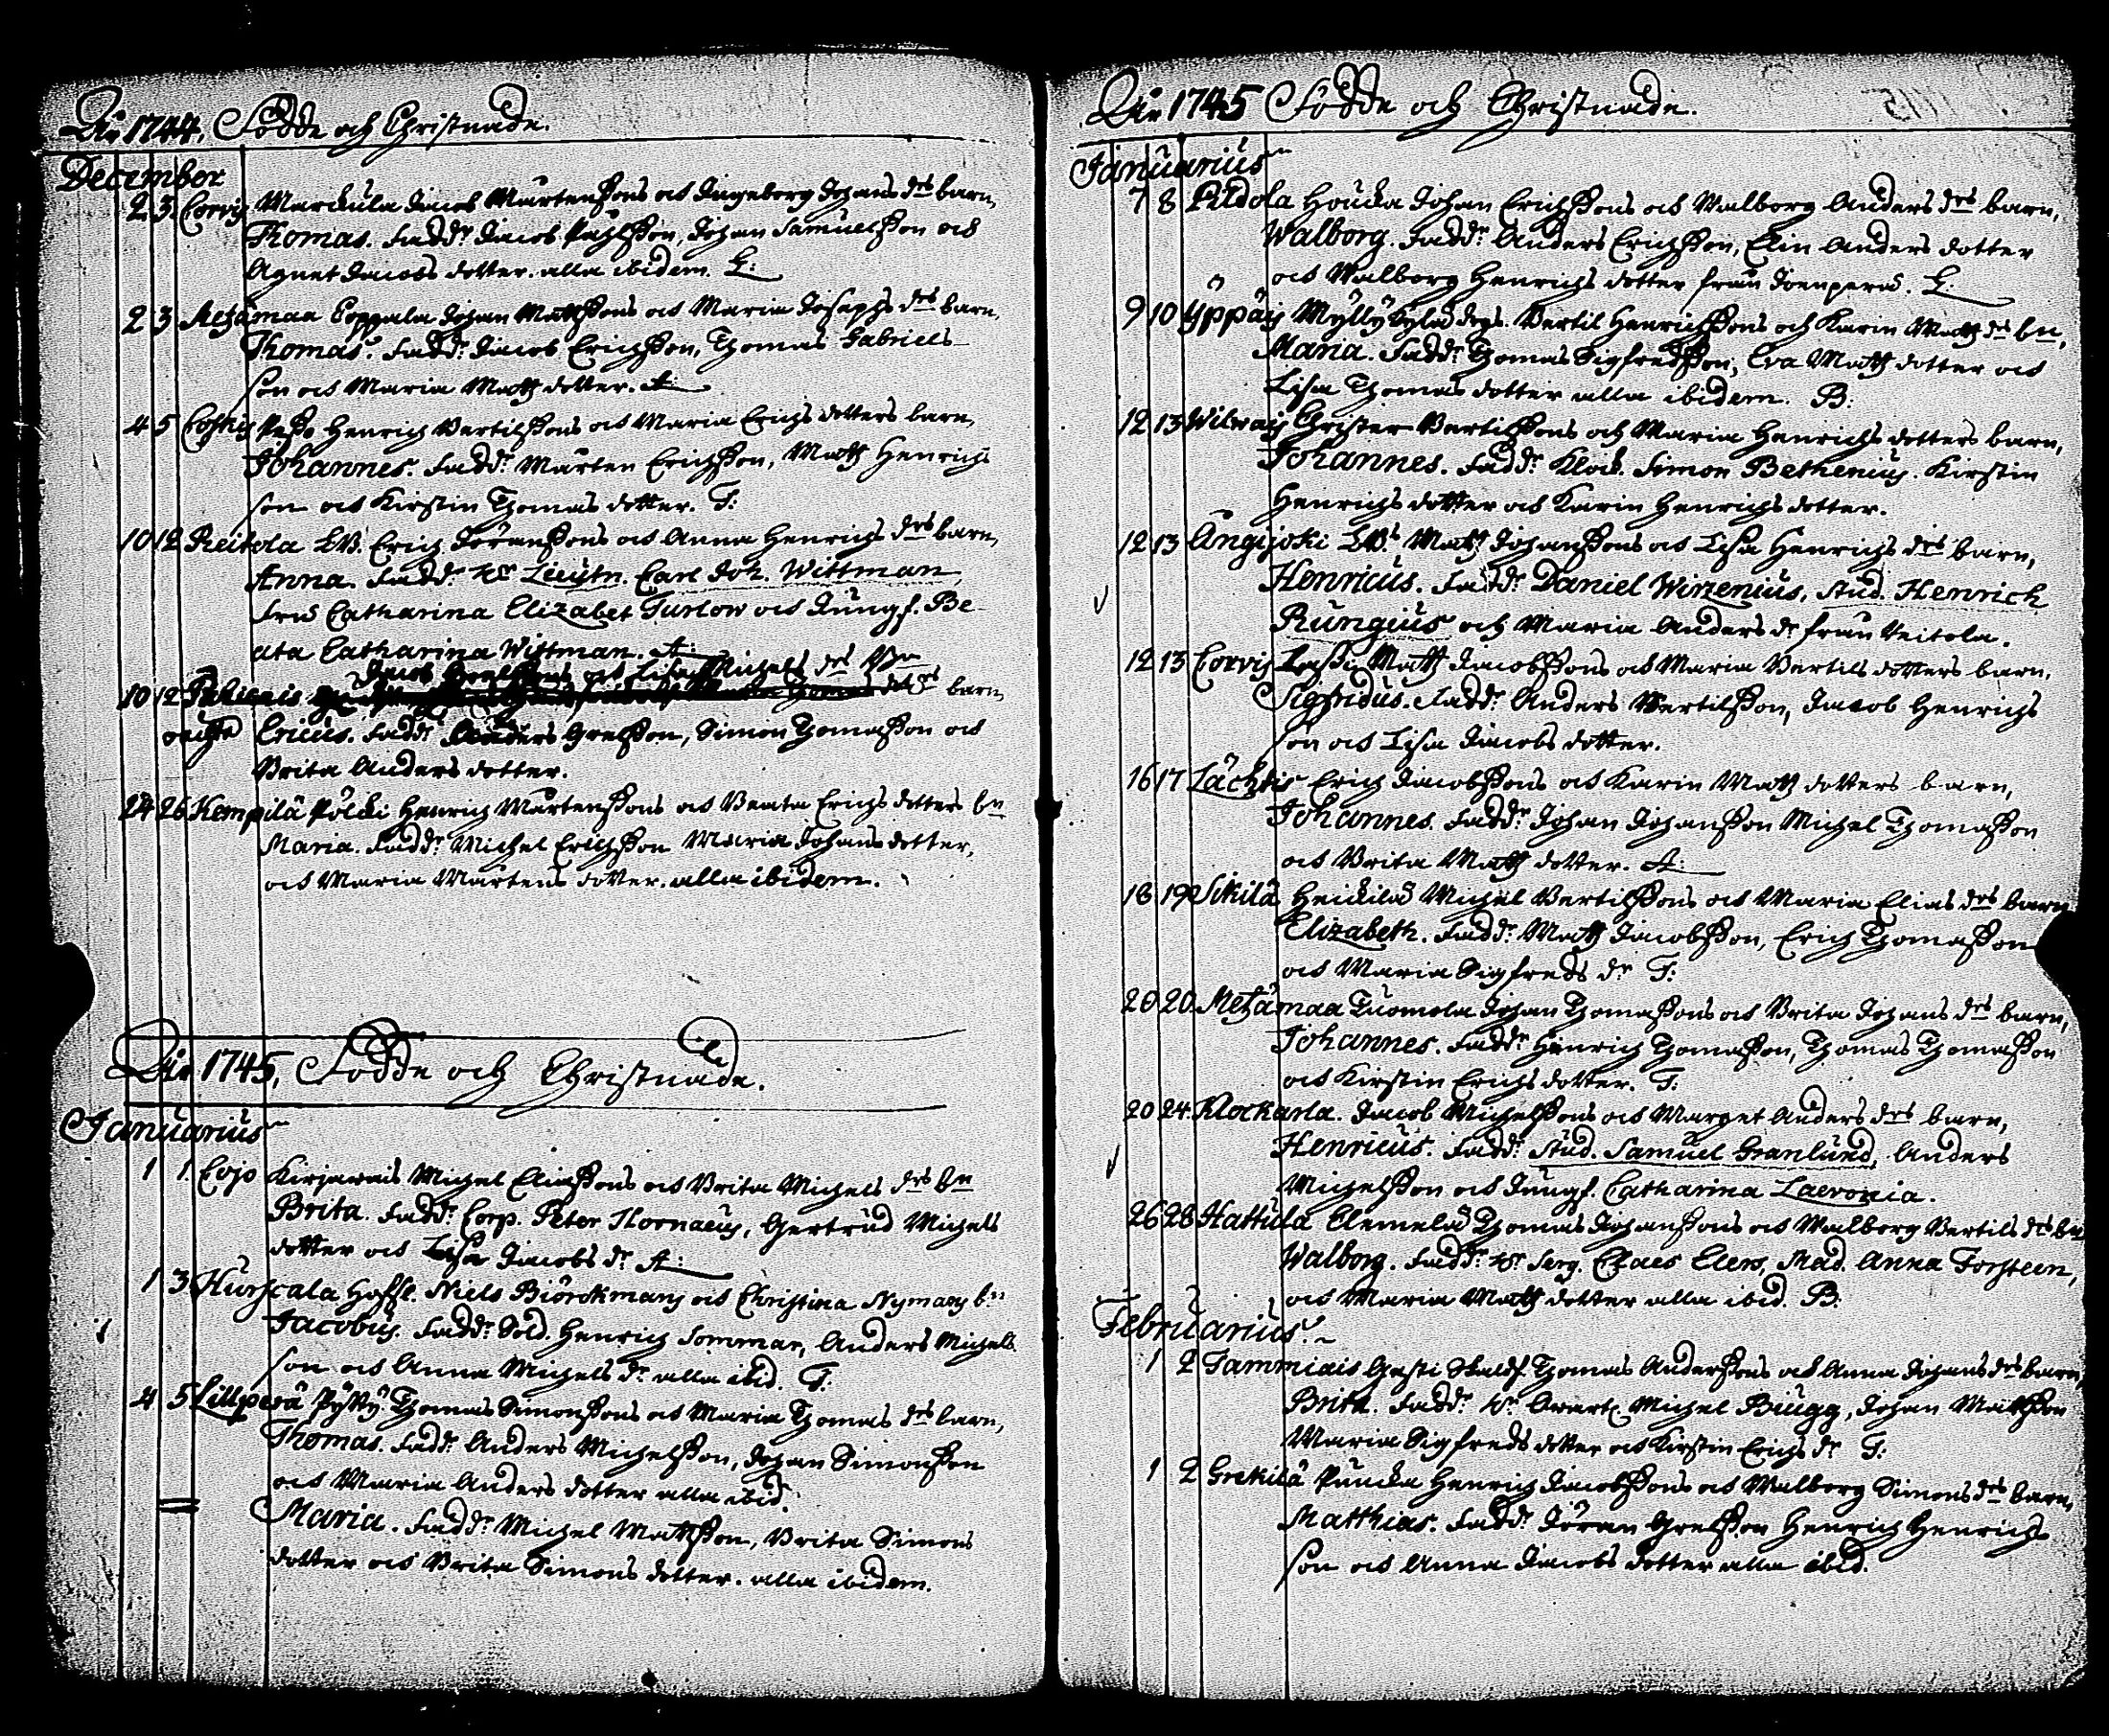 År 1744, Födde och Christnade.
December
2 3. Corvis Marckula Jacob Mårtenssons och Ingeborg Johans drs barn,
Thomas. Faddr Jacob Påhlsson, Johan Samuelsson och
Agnet Jacobs dotter. alla ibidem. L:
2 3 Metzämaa Coppala Johan Mattssons och Maria Josephs drs barn,
Thomas. Faddr Jacob Erichsson, Thomas Gabriels-
son och Maria Matts dotter. A:
4 5 Henrich Bertilssons och Maria Erichs dotters barn,
Johannes. Faddr Mårten Erichsson, Matts Henrichs
son och Kirstin Thomas dotter. T:
10 12 Reitola Erich Göranssons och Anna Henrichs drs barn,
Anna. Faddr Hr Lieutn. Carl Joh. Wittman,
fru Catharina Elizabet Turlow och Jungf. Be-
ata Catharina Wittman. A:
Jacob och Lisa Michels drs Bn
10 12 dotrs barn,
Ericus. Faddr Anders Grelsson, Simon Thomasson och
Brita Anders dotter.
24 26 Kempilä Pölcki Henrich Mårtenssons och Beata Erichs dotters bn
Maria. Faddr Michel Erichsson Maria Johans dotter,
och Maria Mårtens dotter. alla ibidem.
År 1745, Födde och Christnade.
Januarius
1 1. Cojo Kirjavais Michel Eliassons och Brita Michels drs bn
Brita. Faddr Corp. Peter Hornaeus, Gertrud Michels
dotter och Lisa Jacobs dr A:
1 3 Hurscala Niels Biörckmans och Christina Nymans bn
Jacobus. Faddr Sold. Henrich Sommar, Anders Michels
son och Anna Michels dr alla ibid. T:
4 5 Lillperä Pytty Thomas Simonssons och Maria Thomas drs barn,
Thomas. Faddr Anders Michelsson, Johan Simonsson
och Maria Anders dotter alla ibid.
Maria. Faddr Michel Mattsson, Brita Simons
dotter och Brita Simons dotter. alla ibidem.
År 1745 Födde och Christnade.
Januarius
7 8 Pildola Houcka Johan Erichssons och Walborg Anders drs barn,
Walborg. Faddr Anders Erichsson, Elin Anders dotter
och Walborg Henrichs dotter från Joenperä. L:
9 10 Yppäis Mylly Bertil Henrichssons och Karin Matts drs bn,
Maria. Faddr Thomas Sigfredsson, Eva Matts dotter och
Lisa Thomas dotter alla ibidem. B:
12 13 Wilvais Christer Bertilssons och Maria Henrichs dotters barn,
Johannes. Faddr Klock. Simon Bethenius. Kirstin
Henrichs dotter och Karin Henrichs dotter.
12 13 Ångijoki Matts Johanssons och Lisa Henrichs drs barn,
Henricus. Faddr Daniel Wirzenius, Stud. Henrich
Rungius och Maria Anders dr från Reitola.
12 13 Corvis Lassi Matts Jacobssons och Maria Bertils dotters barn,
Sigfridus. Faddr Anders Bertilsson, Jacob Henrichs
son och Lisa Jacobs dotter.
16 17 Lächtis Erich Jacobssons och Karin Matts dotters barn,
Johannes. Faddr Johan Johansson Michel Thomasson
och Brita Matts dotter. A:
18 19 Sikilä Heickilä Michel Bertilssons och Maria Elias drs barn
Elizabeth. Faddr Matts Jacobsson, Erich Thomasson
och Maria Sigfreds dr T:
20 20 Metzämaa Tuomola Johan Thomassons och Brita Johans drs barn,
Johannes. Faddr Henrich Thomasson, Thomas Thomasson
och Kirstin Erichs dotter. T:
20 24 Klockarla. Jacob Michelssons och Marget Anders drs barn,
Henricus. Faddr Stud. Samuel Granlund, Anders
Michelsson och Jungf. Catharina Laevonia.
26 28 Hattula Clemelä Thomas Johanssons och Walborg Bertils drs bn
Walborg. Faddr Hr Serg. Claes Elers, Mad. Anna Forsteen,
och Maria Matts dotter alla ibid. B:
Februarius
1 2 Tammiais Gasti Thomas Anderssons och Anna Johans drs barn,
Brita. Faddr Hr Qvart. Michel Biugg, Johan Mattsson
Maria Sigfreds dotter och Kirstin Erichs dr T:
1 2 Grekilä Puucka Henrich Jacobssons och Walborg Simons drs barn,
Matthias. Faddr Göran Grelsson Henrich Henrichs
son och Anna Jacobs dotter alla ibid.